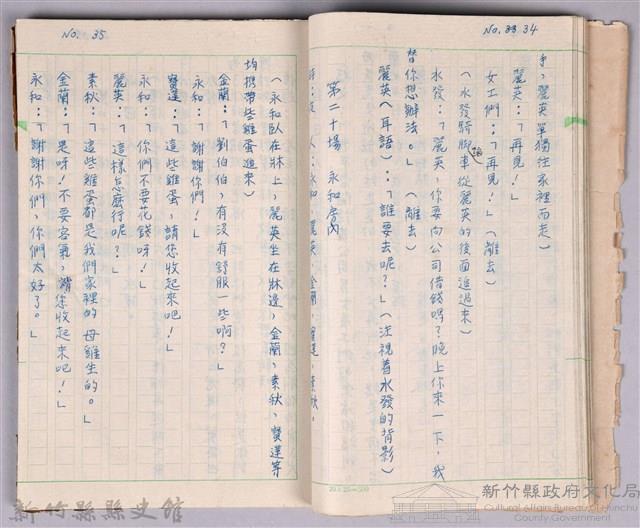 No. 33 34
手，麗英單獨往家裡而走）
麗英：「再見！」
女士們：「再見！」（離去）
（水發騎腳車從麗英的後面追過來）
踏
水發：「麗英，你要向公司借錢嗎？晚上你來一下，我
替你想辦法。」（離去）
麗英（耳語）：「誰要去呢？」（注視着水發的背影）
第二十場 永和房內
人：永和，麗英，金蘭，寶蓮，素秋，
No. 35
（永和臥在牀上，麗英坐在牀邊，金蘭，素秋，寶蓮等
均携帶些雞蛋進來）
金蘭：「劉伯伯，有没有舒服一些啊？」
永和：「謝謝你們！」
寶蓮：「這些雞蛋，請您收起來吧！」
永和：「你們不要花錢呀！」
麗英：「這樣怎麽行呢？」
素秋：「這些雞蛋都是我們家裡的母雞生的。」
金蘭：「是呀！不要客氣，請您收起來吧！」
永和：「謝謝你們，你們太好了。」
20×25=500
新竹縣縣史館
新竹縣政府文化局
Cultural Affairs Bureau of Hsinchu
County Government